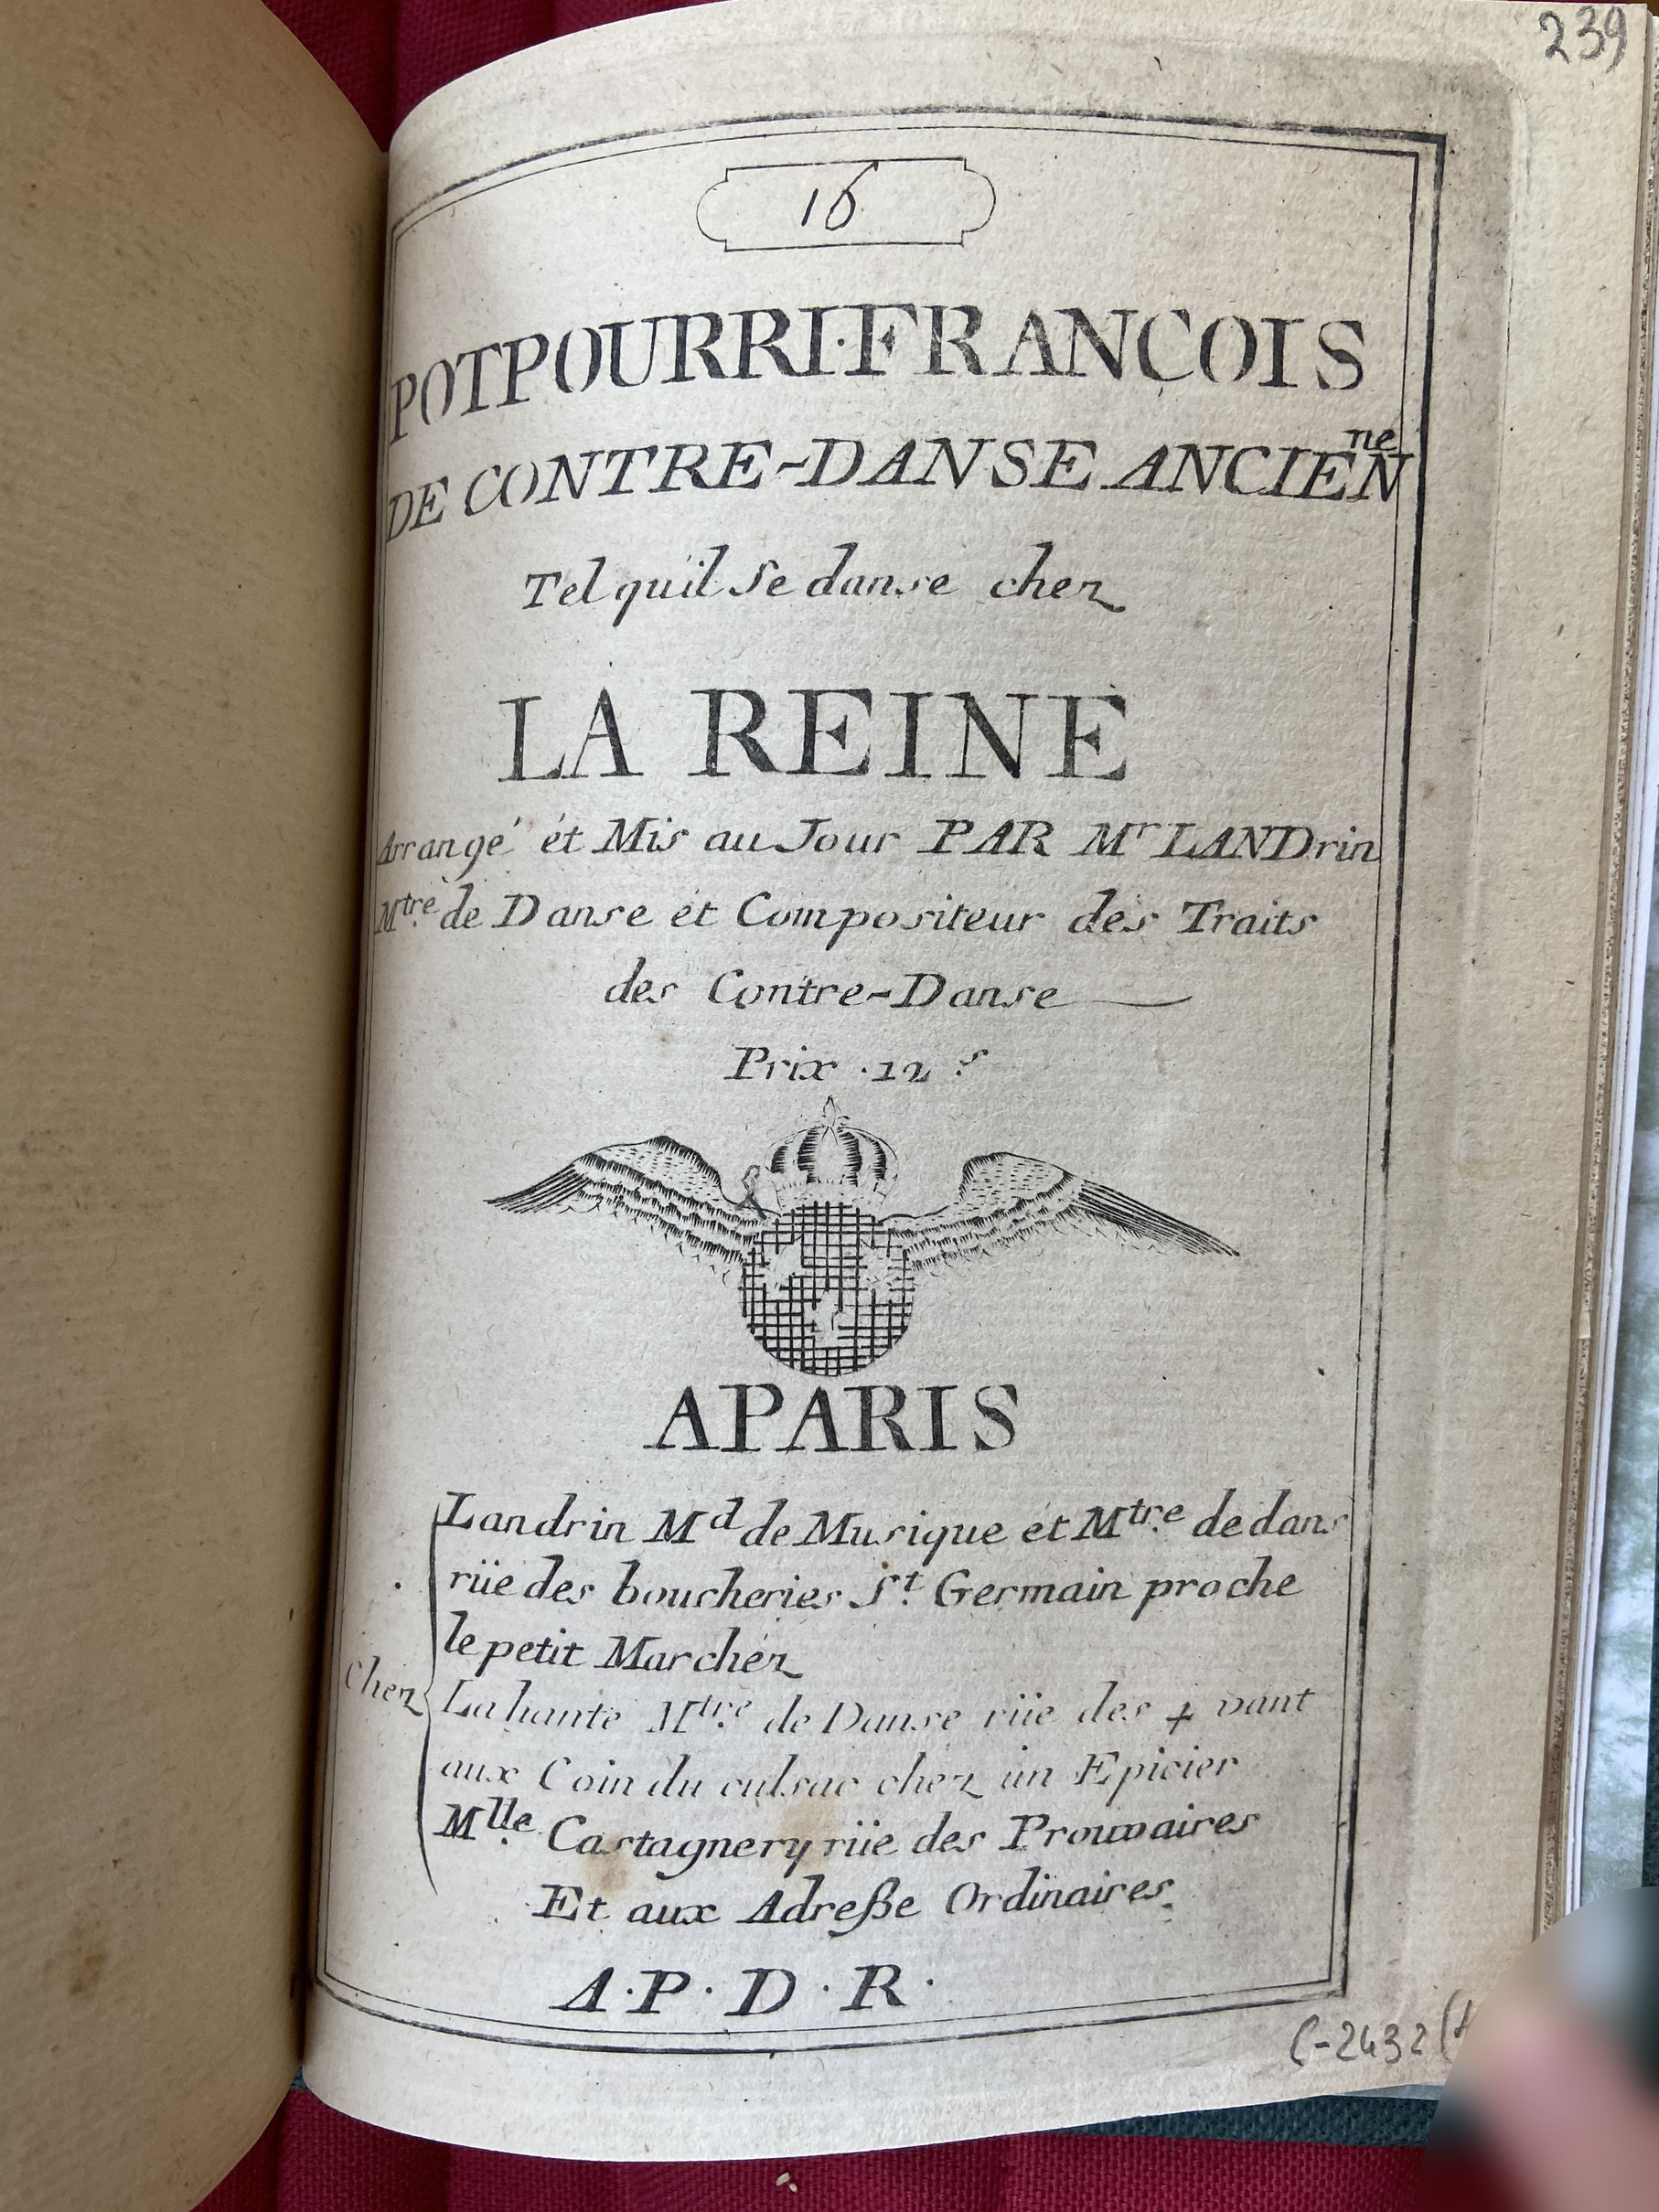 239
16
POTPOURRI·FRANÇOIS
DE CONTRE-DANSE ANCIENne
Tel quil Se danse chez
LA REINE
Arrangé ét Mis au Jour PAR Mr LANDrin
Mtre de Danse ét Compositeur des Traits
des Contre-Danse
Prix .12 s
APARIS
Landrin Md de Musique ét Mtre de dans
rüe des boucheries St Germain proche
le petit Marchéz
Chez
Lahante Mtre de Danse rüe des + vant
aux Coin du culsac chez un Epicier
Mlle Castagnery rüe des Prouvaires
Et aux Adreße Ordinaires
A·P·D·R·
C-2432 (